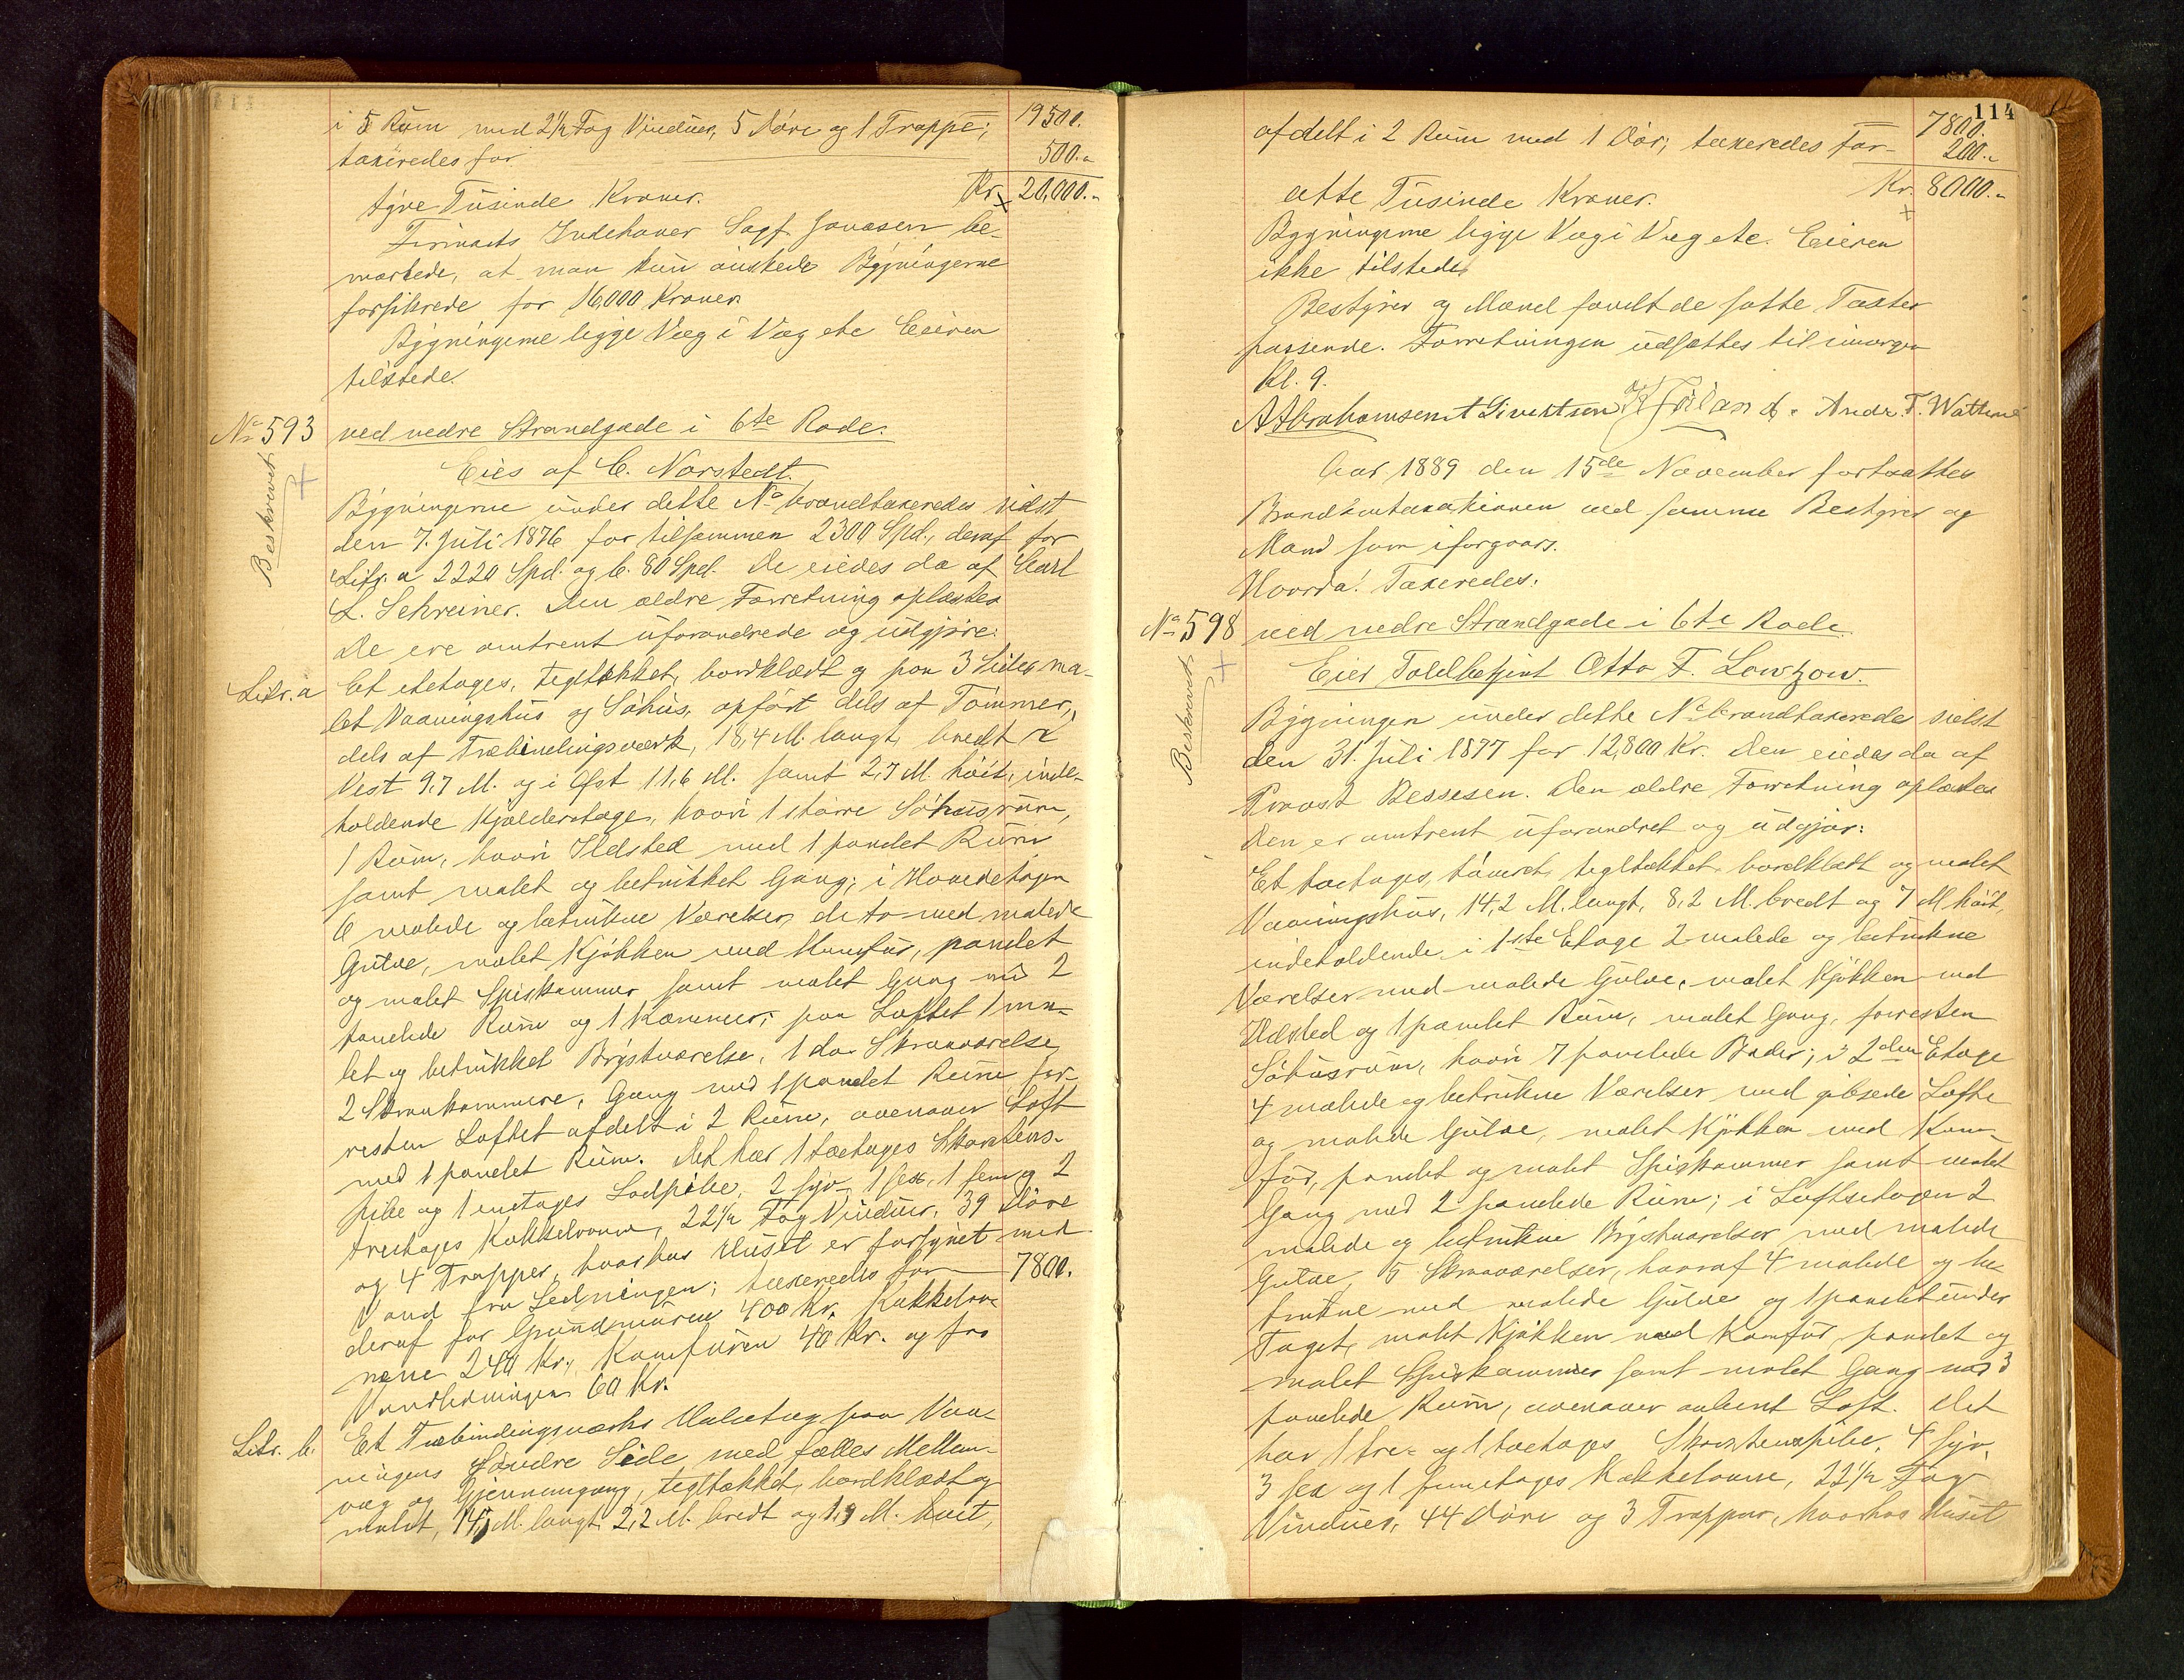 i 5 Rum med 2½ Fag Vinduer, 5 Döre og 1 Trappe; 19500.
taxeredes for 500.-
tyve Tusinde Kroner. Kr. 20,000.-
Firmaets Indehaver Sagf Jonasen be-
mærkede, at man kun önskede Bygningerne
forsikrede for 16,000 Kroner.
Bygningerne ligge Væg i Væg etc Eieren
tilstede.
No 593 ved nedre Strandgade i 6te Rode.
Beskrevet
Eies af C. Norstedt.
Bygningerne under dette No brandtaxeredes sidst
den 7. Juli 1876 for tilsammen 2300 Spd., deraf for
Litr. a 2220 Spd. og b. 80 Spd. De eiedes da af Carl
L. Schreiner. Den ældre Forretning oplæstes
De ere omtrent uforandrede og udgjøre:
Litr. a Et etetages, tegltækket, bordklædt og paa 3 Sider ma-
let Vaaningshus og Söhus, opfört dels af Tömmer,
dels af Træbindingsværk, 18,4 M. langt, bredt i
Vest 9,7 M. og i Öst 11,6 M. samt 2,7 M. höit, inde-
holdende Kjælderetage, hvori 1 större Söhusrum,
1 Rum, hvori Ildsted med 1 panelet Rum
samt malet og betrukket Gang; i Hovedetagen
6 malede og betrukne Værelser, de to med malede
Gulve, malet Kjökken med Komfur, panelet
og malet Spiskammer samt malet Gang med 2
panelede Rum og 1 Kammer; paa Loftet 1 ma-
let og betrukket Brystværelse, 1 do Skraaværelse,
2 Skraakammere, Gang med 1 panelet Rum, for-
resten Loftet afdelt i 2 Rum, ovenover Loft
med 1 panelet Rum. Det har 1 toetages Skorstens-
pibe og 1 enetages Lodpibe, 2 syv, 1 sex, 1 fem og 2
treetages Kakkelovne, 22½ Fag Vinduer, 39 Döre
og 4 Trapper, hvorhos Huset er forsynet med
Vand fra Ledningen; taxeredes for 7800.
deraf for Grundmuren 400 Kr. Kakkelov-
nene 240 Kr., Komfuren 40 Kr. og for
Vandledningen 60 Kr.
Litr. b. Et Træbindingsværks Halvtag paa Vaa-
ningens söndre Side med fælles Mellem-
væg og Gjennemgang, tegltækket, bordklædt og
malet, M. langt 2,2 M. bredt og 1,9 M. höit,
114
7800.
afdelt i 2 Rum med 1 Dör; taxeredes for 200.-
otte Tusinde Kroner. Kr. 8000.-
Bygningerne ligge Væg i Væg etc. Eieren
ikke tilstede
Bestyrer og Mænd fandt de satte Taxter
passende. Forretningen udsattes til imorgen
Kl. 9.
A Abrahamsen T Sivertsen Andr. T. Wattne
Aar 1889 den 15de November fortsattes
Brandomtaxationen ved samme Bestyrer og
Mænd som iforgaars.
Hvorda! Taxeredes.
No 598 ved nedre Strandgade i 6te Rode.
Beskrevet
Eier Toldbetjent Otto F. Lowzow.
Bygningen under dette No brandtaxeredes sidst
den 31. Juli 1877 for 12,800 Kr. Den eiedes da af
Provst Bessesen. Den ældre Forretning oplæstes
Den er omtrent uforandret og udgjör:
Et toetages, tömret, tegltækket, bordklædt og malet
Vaaningshus, 14,2 M. langt, 8,2 M. bredt og 7 M höit,
indeholdende i 1ste Etage 2 malede og betrukne
Værelser med malede Gulve, malet Kjökken med
Ildsted og 1 panelet Rum, malet Gang, forresten
Söhusrum, hvori 7 panelede Boder; i 2den Etage
4 malede og betrukne Værelser med gibsede Lofte
og malede Gulve, malet Kjökken med Kom-
fur, panelet og malet Spiskammer samt malet
Gang med 2 panelede Rum; i Loftsetagen 2
malede og betrukne Brystværelser med malede
Gulve, 5 Skraaværelser, hvoraf 4 malede og be-
trukne med malede Gulve og 1 panelet under
Taget, malet Kjökken med Komfur, panelet og
malet Spiskammer samt malet Gang med 3
panelede Rum, ovenover aabent Loft. Det
har 1 tre- og 1 toetages Skorstenspibe, 4 syv,
3 sex og 1 femetages Kakkelovne, 22½ Fag
Vinduer, 44 Döre og 3 Trapper, hvorhos Huset